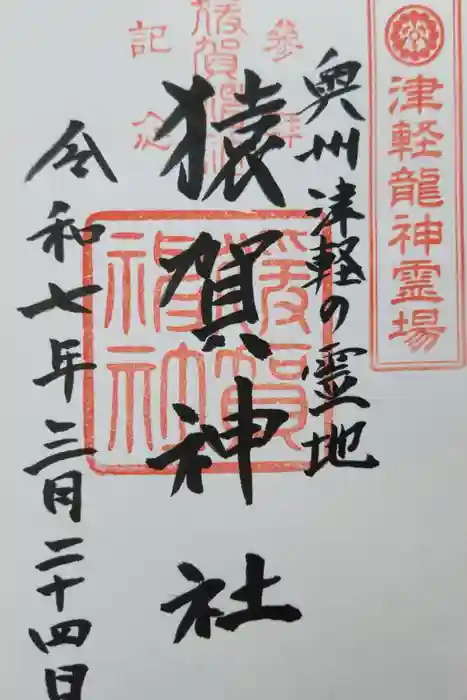 津軽龍神霊場
奥州津軽の霊地
参拝
記念
猿賀神社
猿賀神社
令和七年三月二十四日